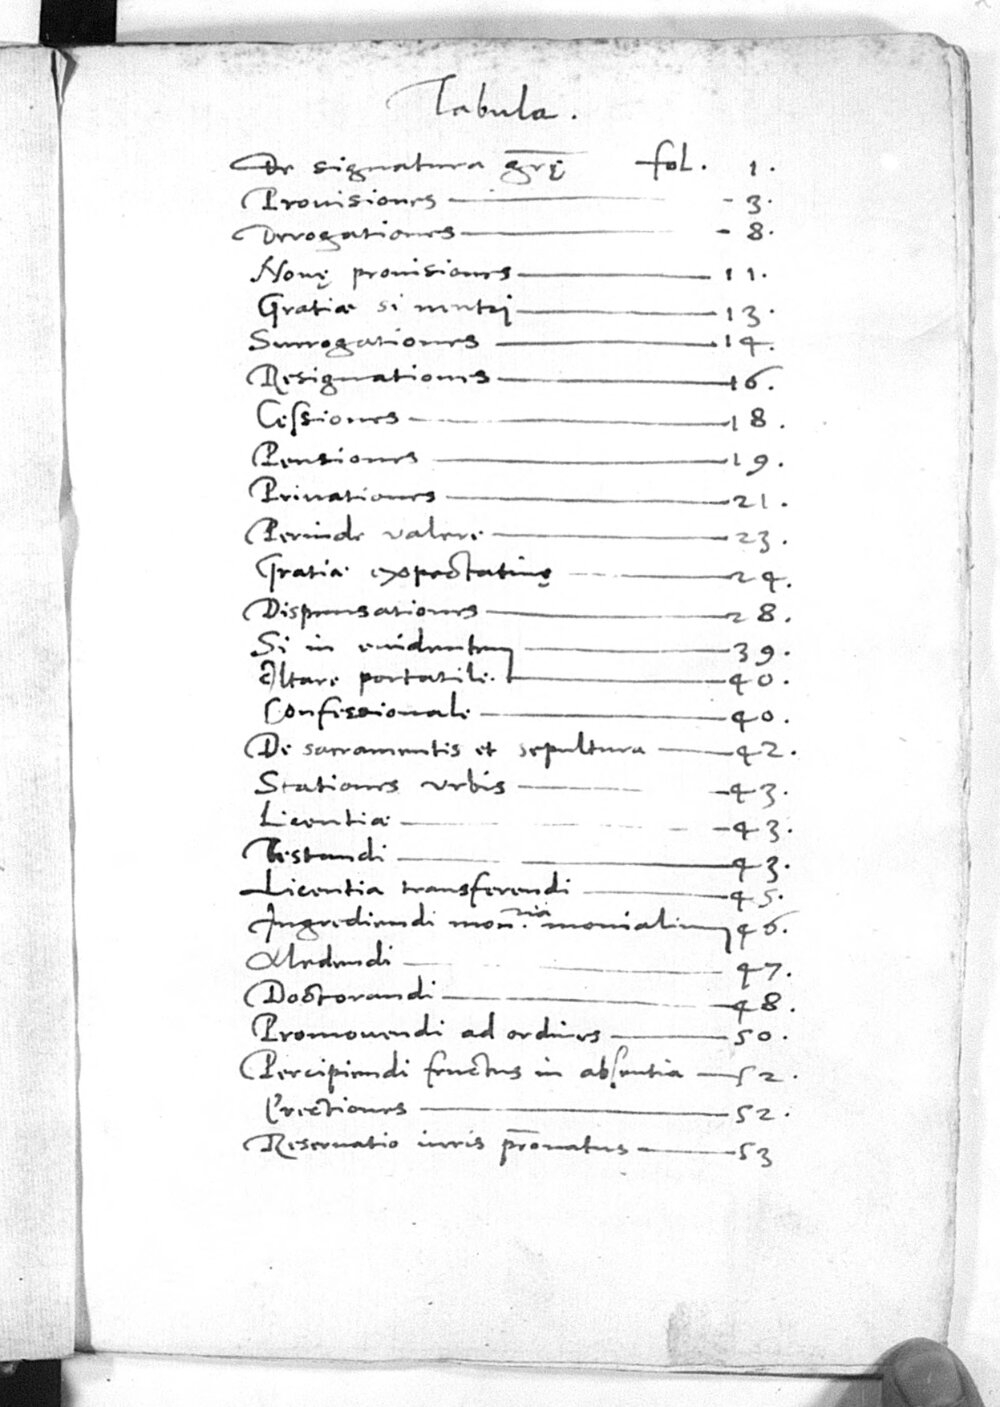 Tabula.
De signatura gr̄ę fol. 1.
Prouisiones 3.
Derogationes 8.
Nouę prouisiones 11.
Gratiæ si neutri 13.
Surrogationes 14.
Resignationes 16.
Ceſsiones 18.
Pensiones 19.
Priuationes 21.
Perinde valere 23.
Gratiæ expectatiuę 24.
Dispensationes 28.
Si in euidentem 39.
Altare portatile. 40.
Confessionale 40.
De sacramentis et sepultura 42.
Stationes vrbis 43.
Licentiæ 43.
Testandi 43.
Licentia transferendi 45.
Ingrediendi mon.ria monialium 46.
Medendi 47.
Doctorandi 48.
Promouendi ad ordines 50.
Percipiendi fructus in abſentia 52.
Erectiones 52.
Reseruatio iuris pr̄onatus 53